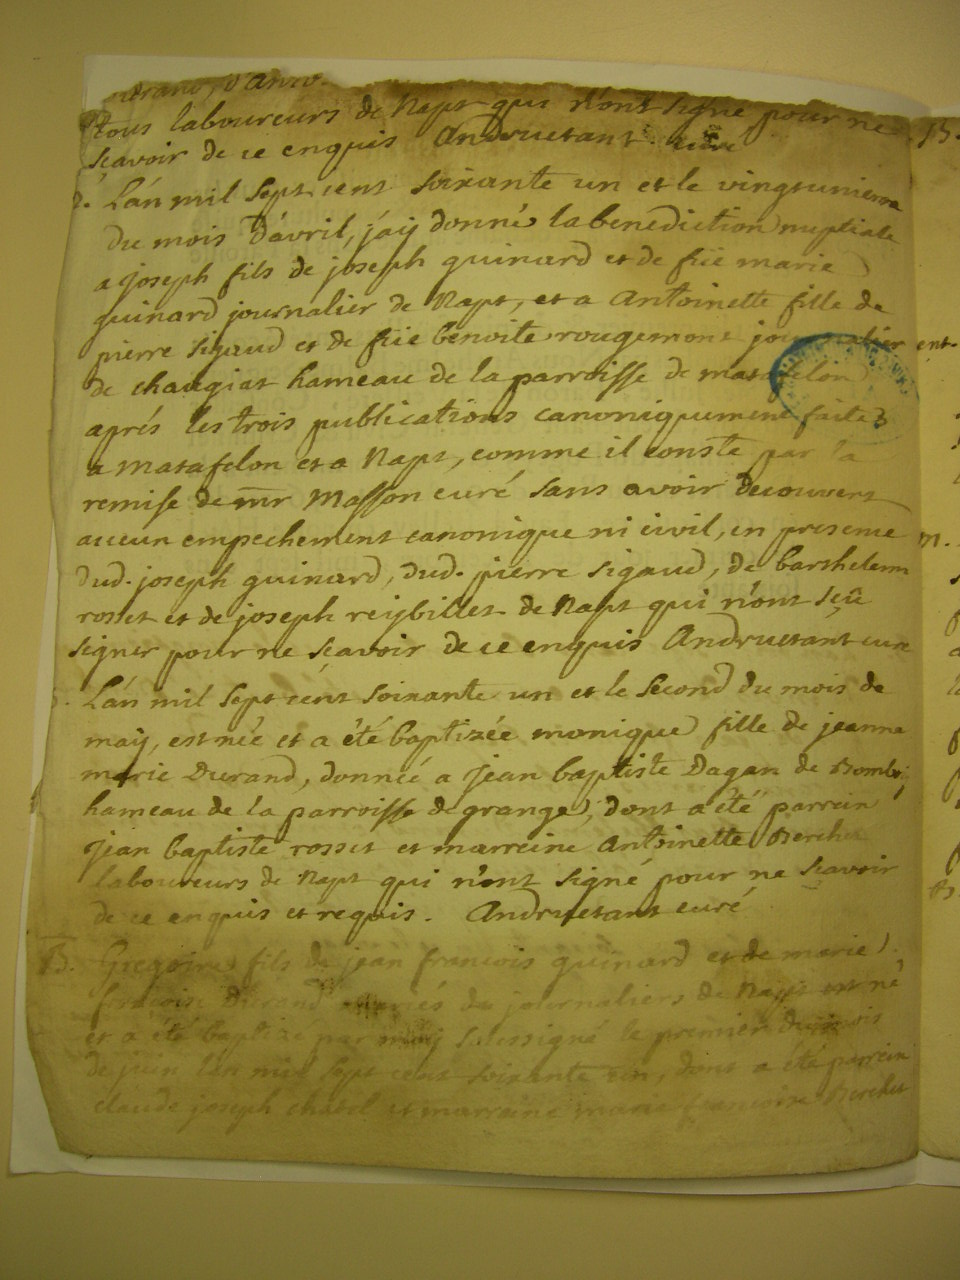 tous laboureurs de Napt qui n'ont signé pour ne
sçavoir de ce enquis Andruetant curé
L'an mil sept cent soixante un et le vingtunieme
du mois d'avril, j'aÿ donné la benediction nuptiale
a joseph fils de joseph guinard et de füe marie
guinard journalier de Napt, et a Antoinette fille de
pierre sigaud et de füe benoite rougemont journalier
de chaugiat hameau de la parroisse de matafelon
aprés les trois publications canoniquement faites
a matafelon et a Napt, comme il conste par la
remise de mr Masson curé sans avoir decouvert
aucun empechement canonique ni civil, en presence
dud. joseph guinard, dud. pierre sigaud, de barthelemi
rosset et de joseph reijbillet de Napt qui n'ont sçû
signer pour ne sçavoir de ce enquis Andruetant curé
L'an mil sept cent soixante un et le second du mois de
maÿ, est née et a été baptizée monique fille de jeanne
marie Durand, donnée a jean baptiste Dagan de
hameau de la parroisse de grange, dont a été parrein
jean baptiste rosset et marreine Antoinette Berchet
laboureurs de Napt qui n'ont signé pour ne sçavoir
de ce enquis et requis. Andruetant curé
B. Gregoire fils de jean francois guinard et de marie
francoise Durand mariés journaliers de Napt est né
et a été baptizé par moÿ soussigné le premier du mois
de juin l'an mil sept cent soixante un, dont a été parrein
claude joseph chatel et marraine marie francoise Berchet